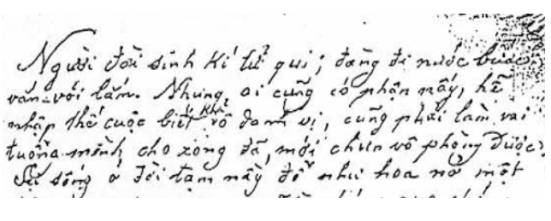 Người đời sinh kí tử qui; đàng đi nước bước
vắn-vỏi lắm. Nhưng ai cũng có phận nấy, hễ
nhập thế cuộc bất khả vô danh vị, cũng phải làm vai
tuồng mình, cho xong đã, mới chun vô phòng được;
Sự sống ở đời tạm nầy đỗ như hoa nở một